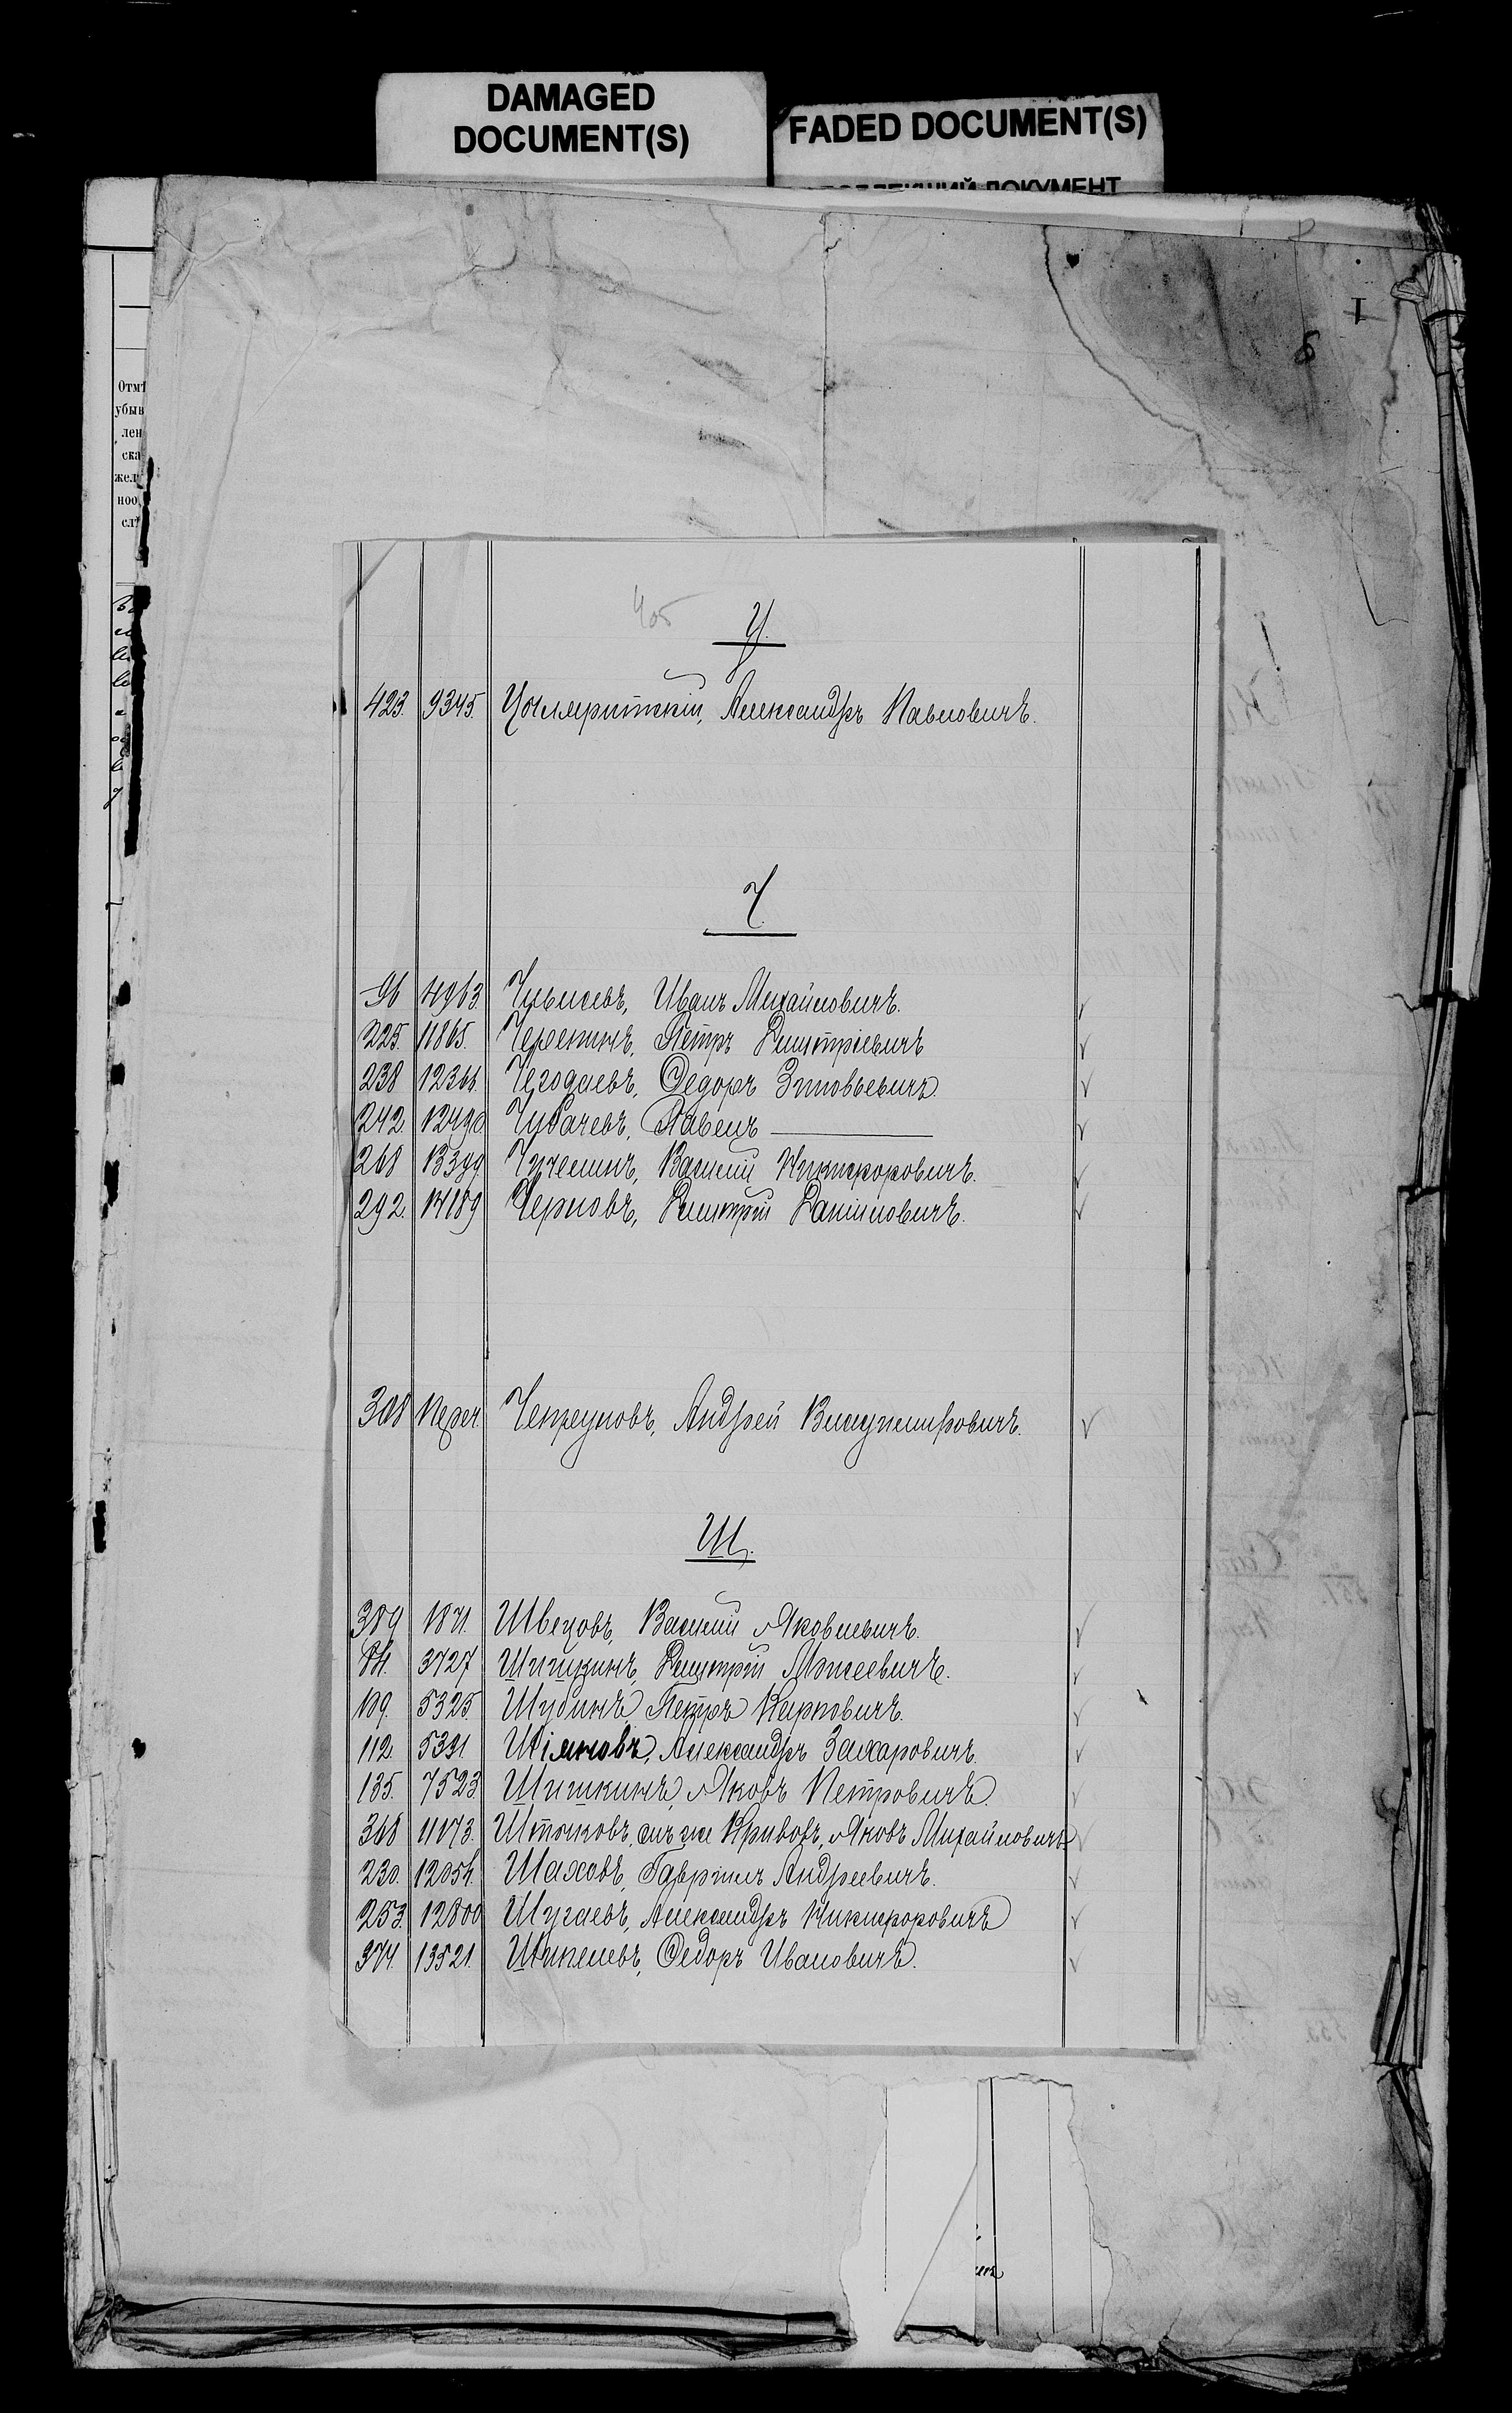 DAMAGED
DOCUMENT(S)
FADED DOCUMENT(S)
ДОКУМЕНТ
Отмѣ
убыв
лен
ска
жел
ноо
слѣ
405
Ц.
423. 9345. Александръ Павловичъ.
Ч
96 4963 Иванъ Михайловичъ.
225. 11865. Черепинъ, Петръ Дмитріевичъ
238 12366. Чегодаевъ, Федоръ Зиновьевичъ.
242. 12490 Чубачевъ, Павелъ
268 13399 Василій Никифоровичъ.
292. 14189 Черновъ, Дмитрій Даниловичъ.
308 Переч. Андрей Владимировичъ.
Ш.
389 1871. Швецовъ, Василій Яковлевичъ.
84. 3727 Дмитрій Моисеевичъ.
109. 5325 Шубинъ, Петръ Карповичъ.
112. 5331 Александръ Захаровичъ.
135. 7523 Шишкинъ, Яковъ Петровичъ.
368 11173. онъ же Кривовъ, Яковъ Михайловичъ
230. 12054. Шаховъ, Гавріилъ Андреевичъ.
253. 12800 Шугаевъ, Александръ Никифоровичъ
374. 13521. Федоръ Ивановичъ.